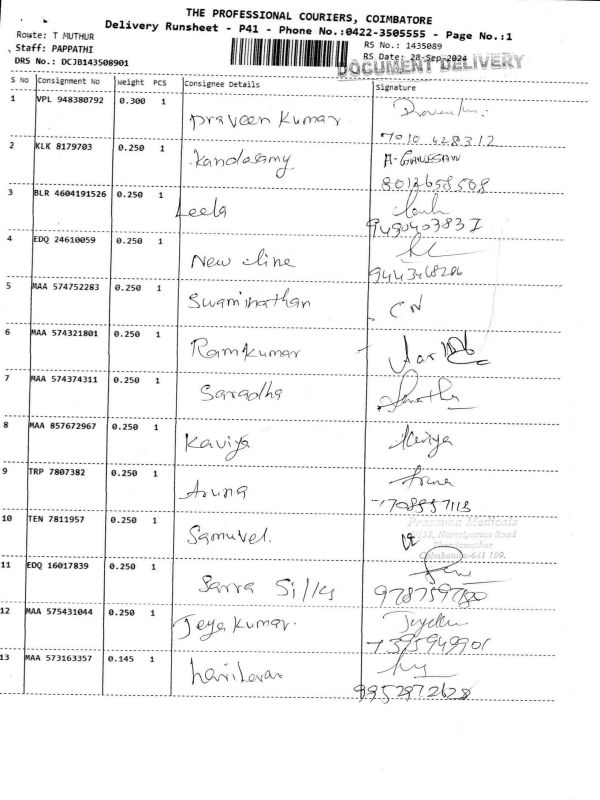 THE PROFESSIONAL COURIERS, COIMBATORE
Delivery Runsheet - P41 - Phone No.:0422-3505555 - Page No.:1
Route: T MUTHUR RS No.: 1435089
Staff: PAPPATHI RS Date: 28-Sep-2024
DRS No.: DCJB143508901 DOCUMENT DELIVERY
S No Consignment No Weight PCS Consignee Details Signature
1 VPL 948380792 0.300 1 Praveen Kumar
7010 428312
2 KLK 8179703 0.250 1 Kandasamy A. GANESAN
8012658508
3 BLR 4604191526 0.250 1 Leela
4 EDQ 24610059 0.250 1 New line
9443468206
5 MAA 574752283 0.250 1 Swaminathan CN
6 MAA 574321801 0.250 1 Ramkumar
7 MAA 574374311 0.250 1 Saradha
8 MAA 857672967 0.250 1 Kaviya Kaviya
9 TRP 7807382 0.250 1 Aruna Aruna
10 TEN 7811957 0.250 1 Samuvel.
Prasanna Medicals
Narasipuram Road
Thondamuthur
Coimbatore-641 109.
11 EDQ 16017839 0.250 1 Sarra Silks
9787597780
12 MAA 575431044 0.250 1 Jeya Kumar.
7395949901
13 MAA 573163357 0.145 1 hariharan
9952972628